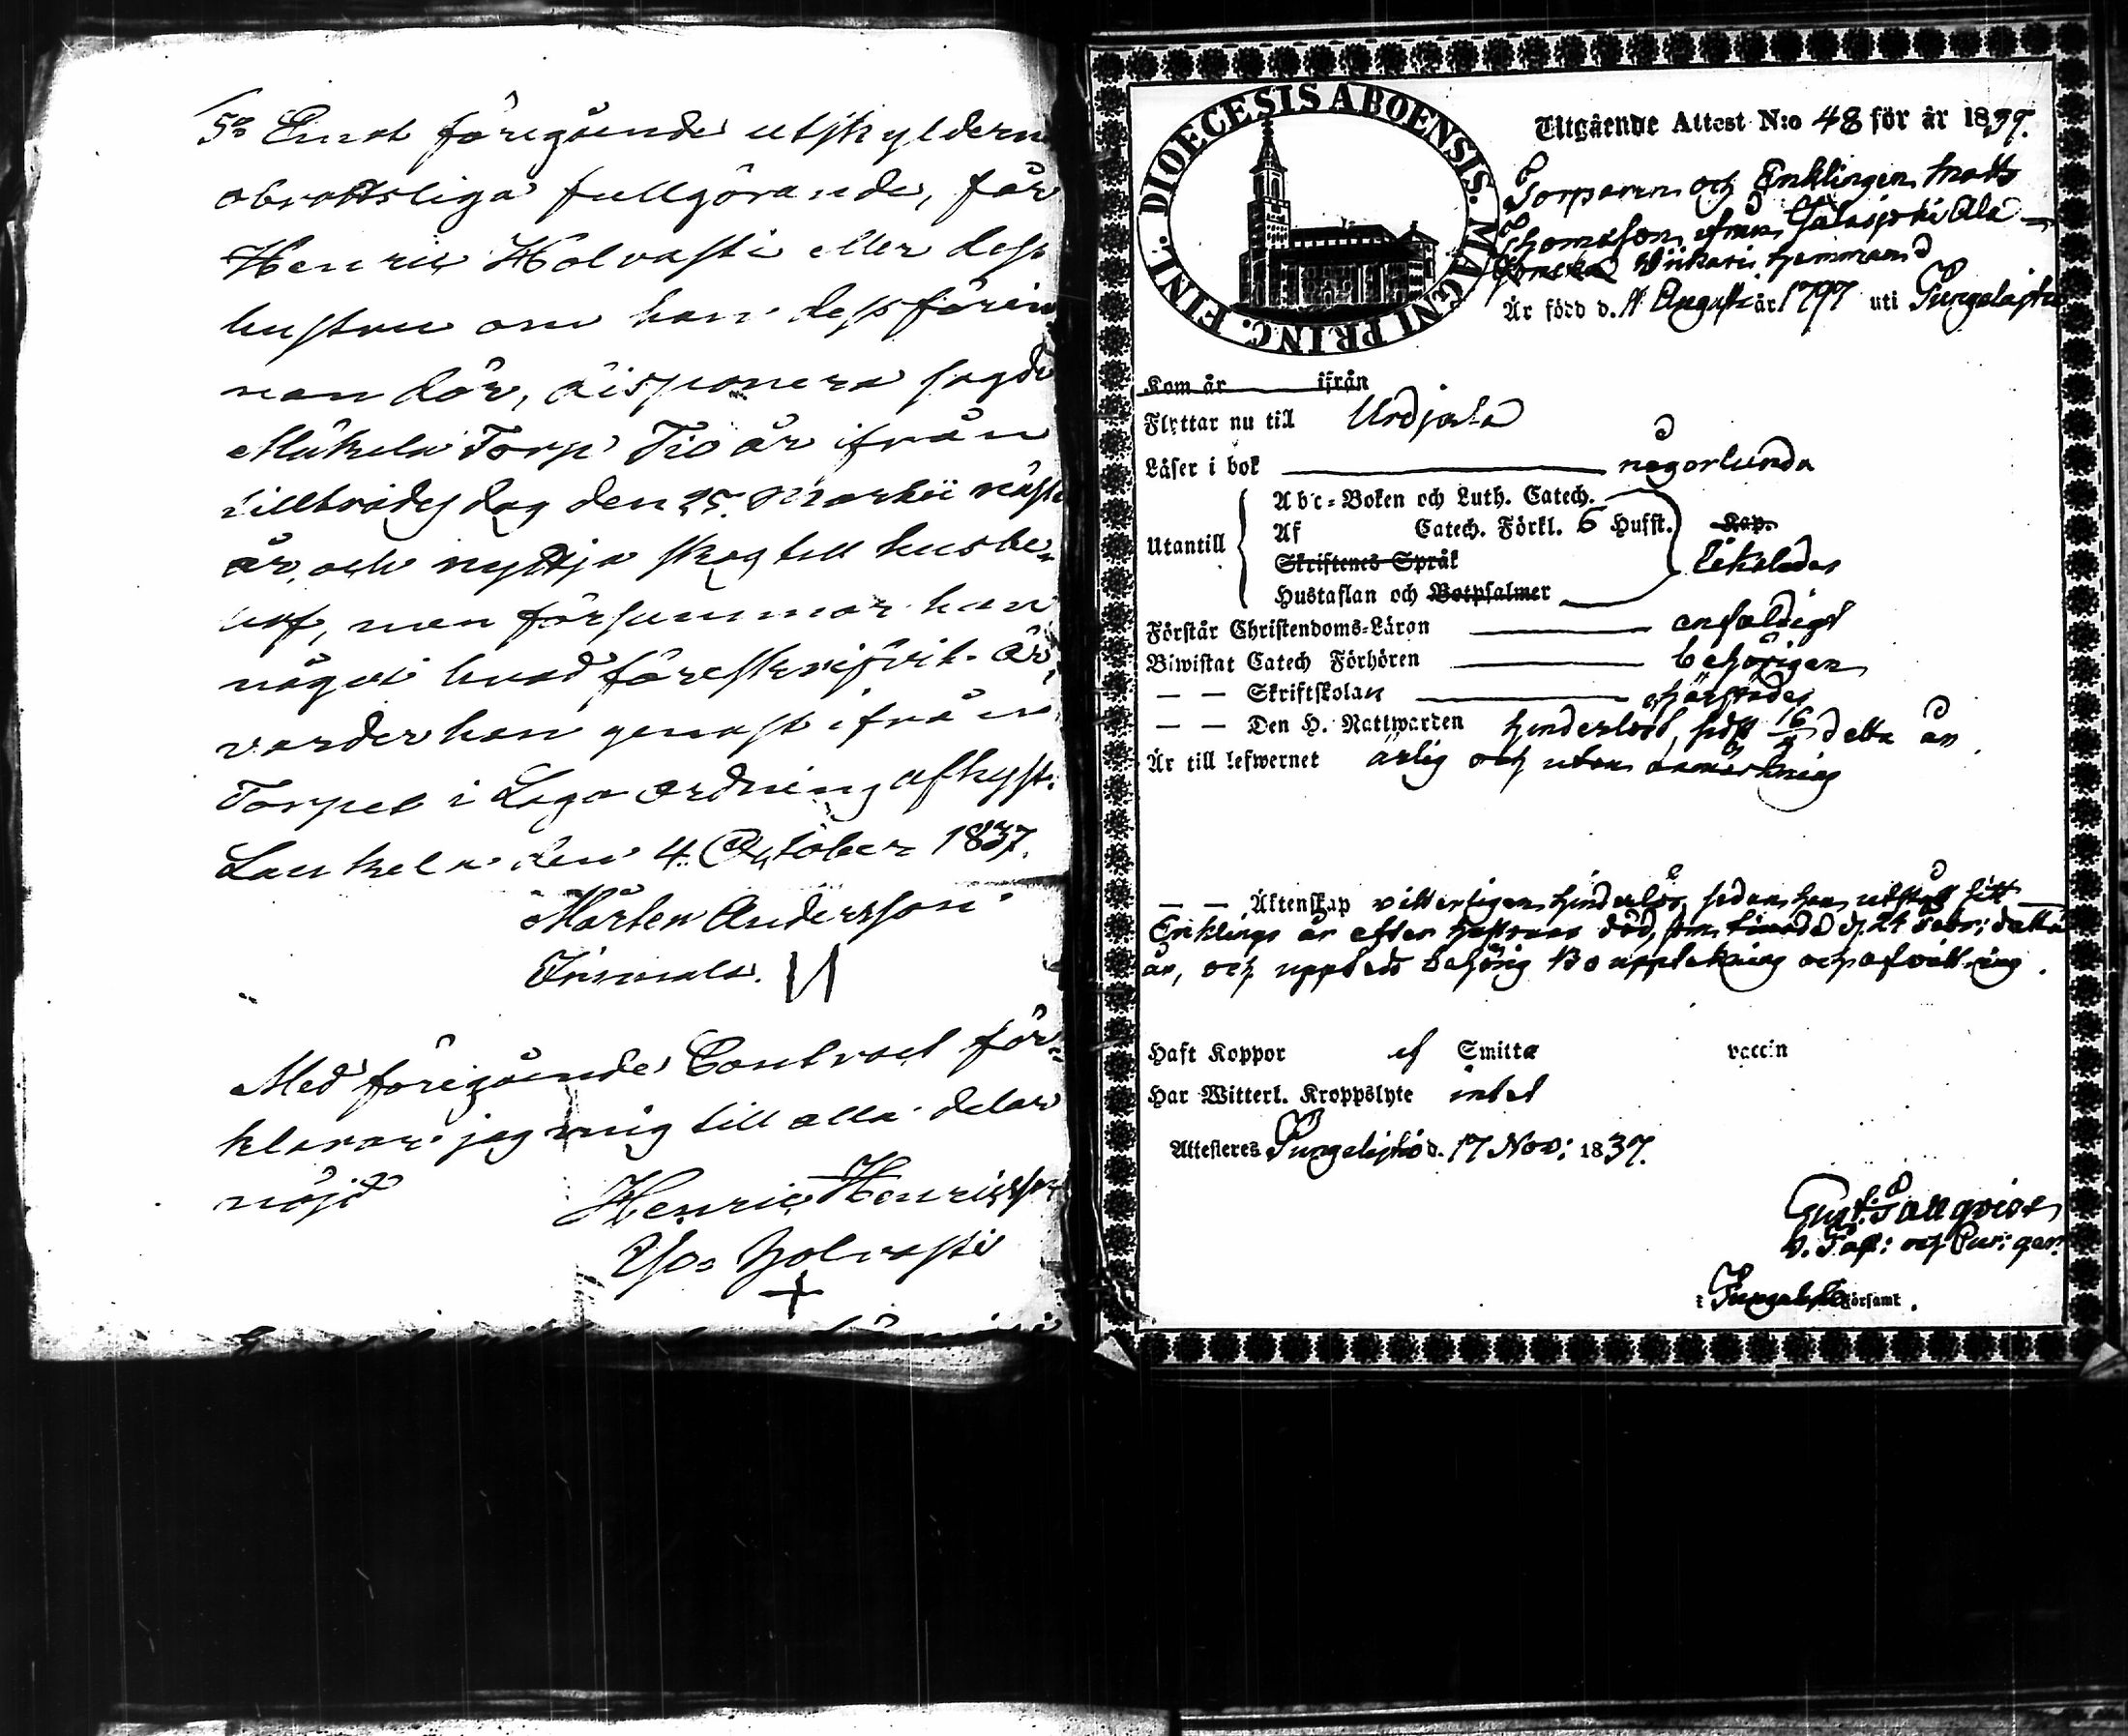 5o Emot föregående utskyldern
obrottsliga fullgörande, får
Henric Holvasti eller dess
hustru om han dess förin
nan dör, disponera sagde
Mäkelä Torp Tio år ifrån
tillträdes dag den 25. Martii näst
år, och nyttja skog till husbe-
hof, men försummar han
något hvad föreskrifvit är,
varder han genast ifrån
Torpet i Laga ordning afhyst.
Laukela den 4 October 1837.
Mårten Andersson
Med föregående Contract för-
klarar jag mig till alla delar
nöjd
Henric Henricsson
Yso- Holvasti
DIOECESIS ABOENSIS. MAGNI PRINC. FINL.
Utgående Attest N:o 48 för år 1839.
Torparen och Enklingen Matts
Thomasson ifrån Ala-
hemmand
Är född d. Augusti år 1797 uti Pungalaitio
Kom år ifrån
Flyttar nu till Urdjala
Läser i bok någorlunda
Abc-Boken och Luth. Catech.
Utantill Af Catech. Förkl. 6 Hufst. Kap.
Skriftenes Språk likaledes
Hustaflan och Botpsalmer
Förstår Christendoms-Läron enfaldigt
Biwistat Catech Förhören behörigen
— — Skriftskolan
— — Den H. Nattwarden hinderlöst, sidst 16/9 detta år
Är till lefwernet ärlig och utan anmärkning
— — Äktenskap vitterligen hinderlös, sedan han utstått sitt
Enklings år efter hustruns död, som timade d. 24 Febr: detta
år, och uppted behörig Bouppteckning och afvittring.
Haft Koppor af Smitta vaccin
Har Witterl. Kroppslyte intet
Attesteres Pungalaitio d. 17 Nov: 1839.
Gust. Pallqvist
V. Past: och Cur: gen.
i Pungalaitio Församl.